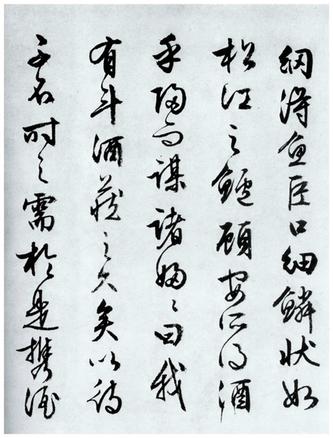 網得魚巨口細鱗狀如
松江之鱸顧安所得酒
乎歸而謀諸婦〻曰我
有斗酒藏之久矣以待
子不時之需於是携酒